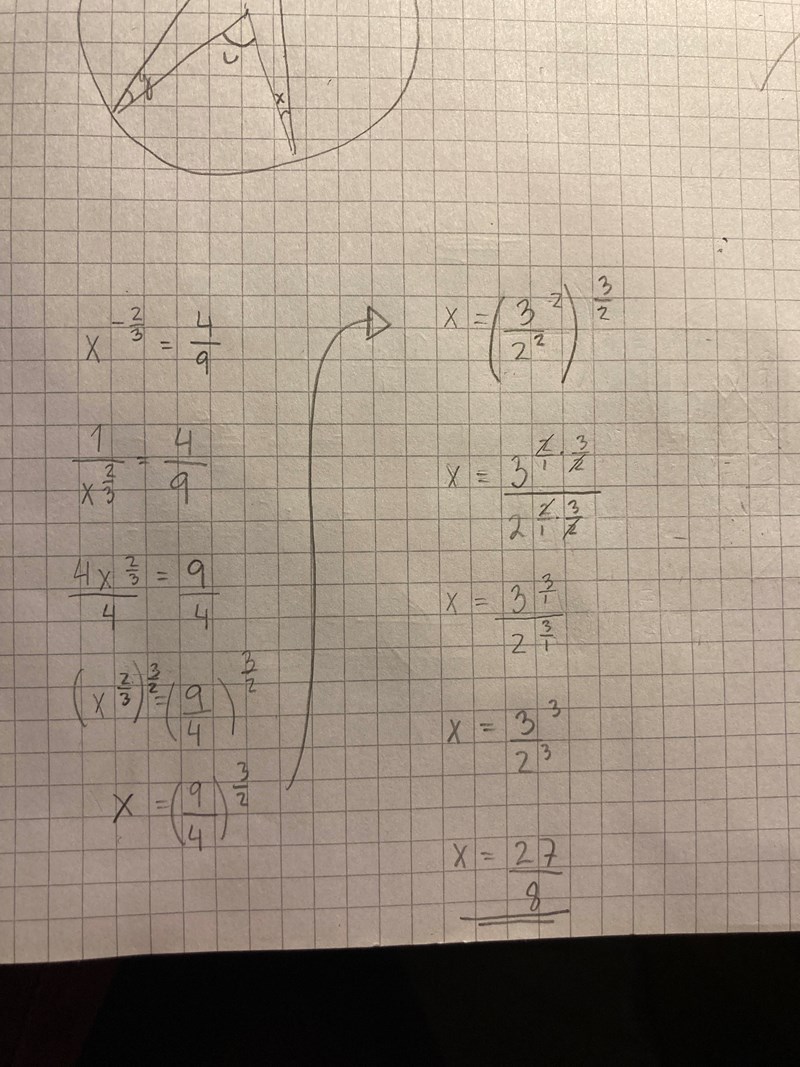 y
v
x
x^(-2/3) = 4/9
1/x^(2/3) = 4/9
4x^(2/3)/4 = 9/4
(x^(2/3))^(3/2) = (9/4)^(3/2)
x = (9/4)^(3/2)
x = (3^2/2^2)^(3/2)
x = 3^(2/1 · 3/2)/2^(2/1 · 3/2)
x = 3^(3/1)/2^(3/1)
x = 3^3/2^3
x = 27/8